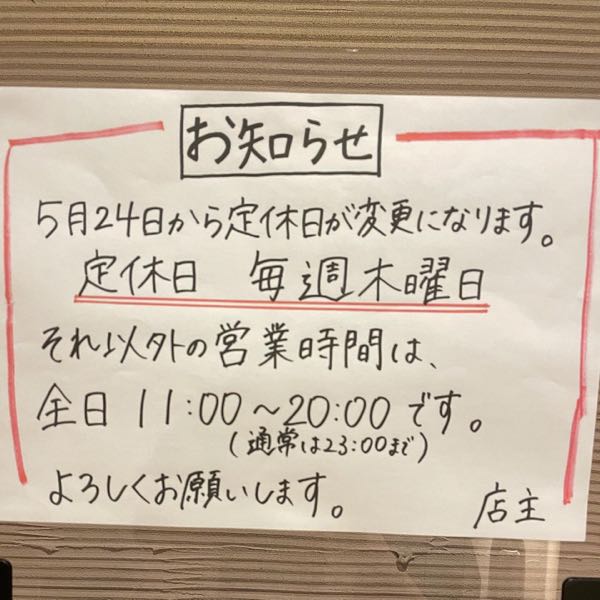 お知らせ
5月24日から定休日が変更になります。
定休日　毎週木曜日
それ以外の営業時間は、
全日 11:00〜20:00 です。
(通常は23:00まで)
よろしくお願いします。
店主